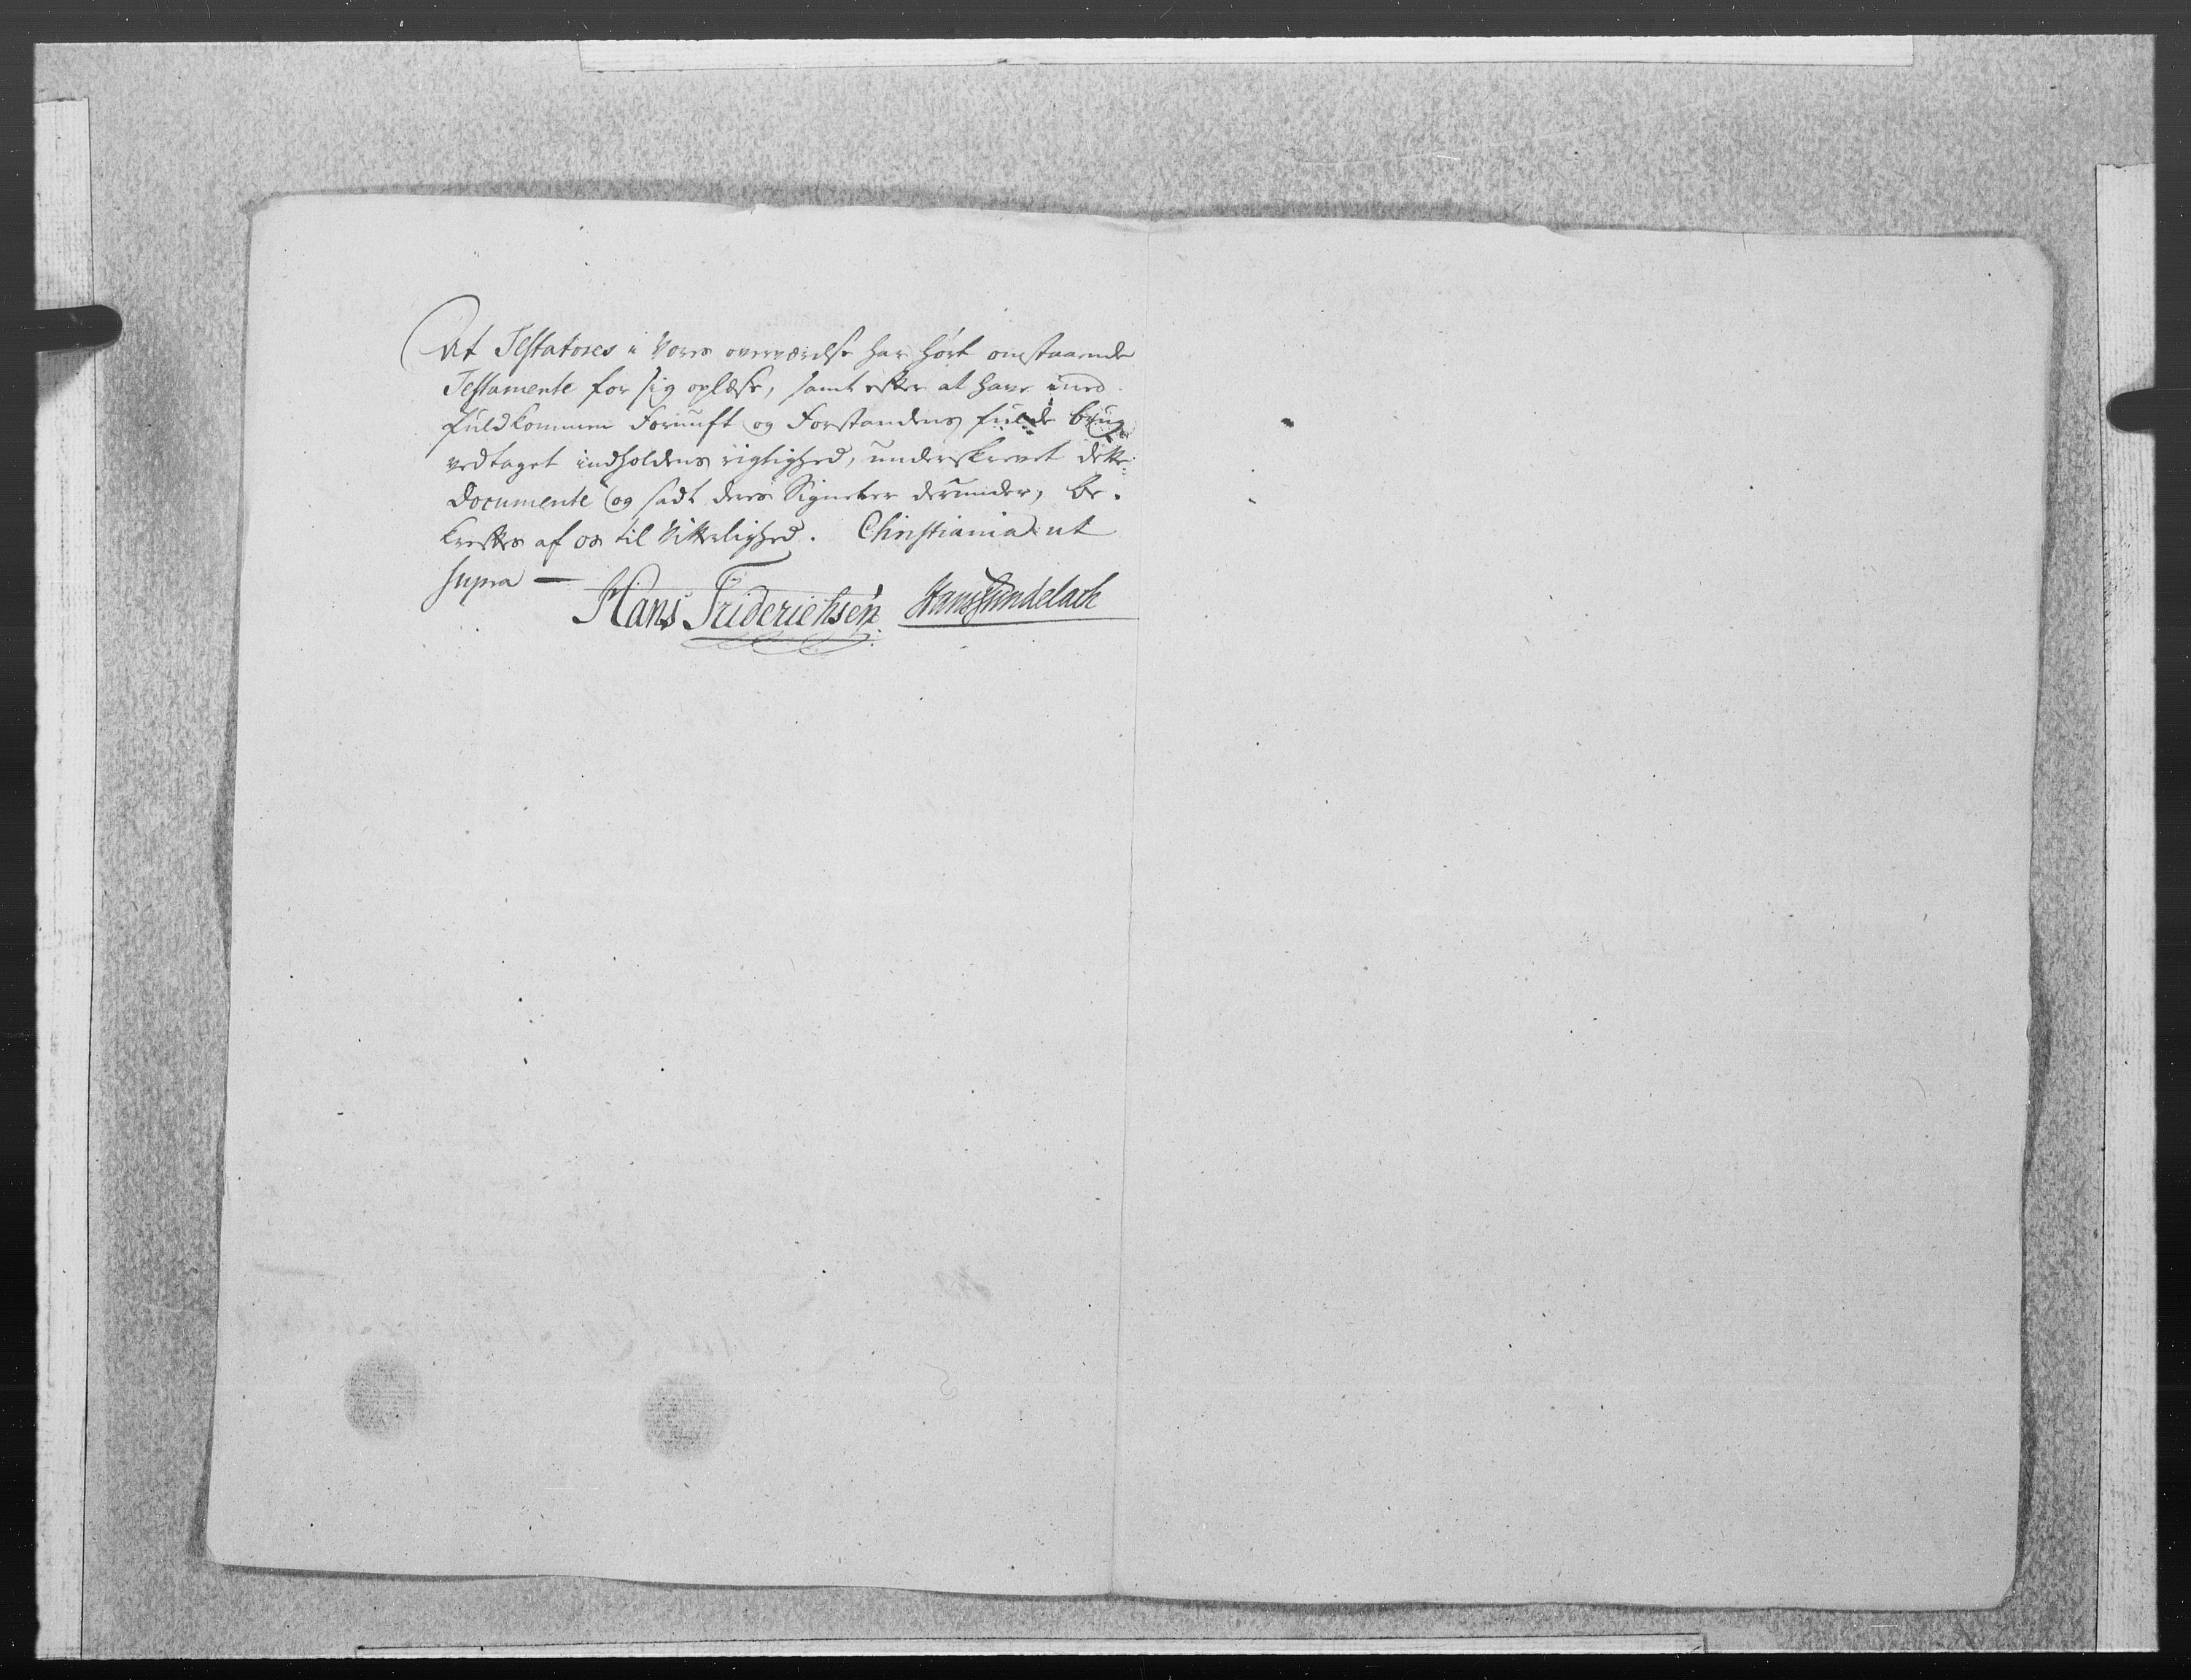 At Testatores i Vores overværelse har hørt omstaaende
Testamente for sig oplæse, samt efter at have med
fuldkommen Fornuft og Forstandens fulde brug
vedtaget indholdens rigtighed, underskrevet dette
Documente og sadt deres Signeter derunder, be-
kræftes af os til Vitterlighed. Christiania ut
supra —
Hans Friderichsen Hans Gundelach